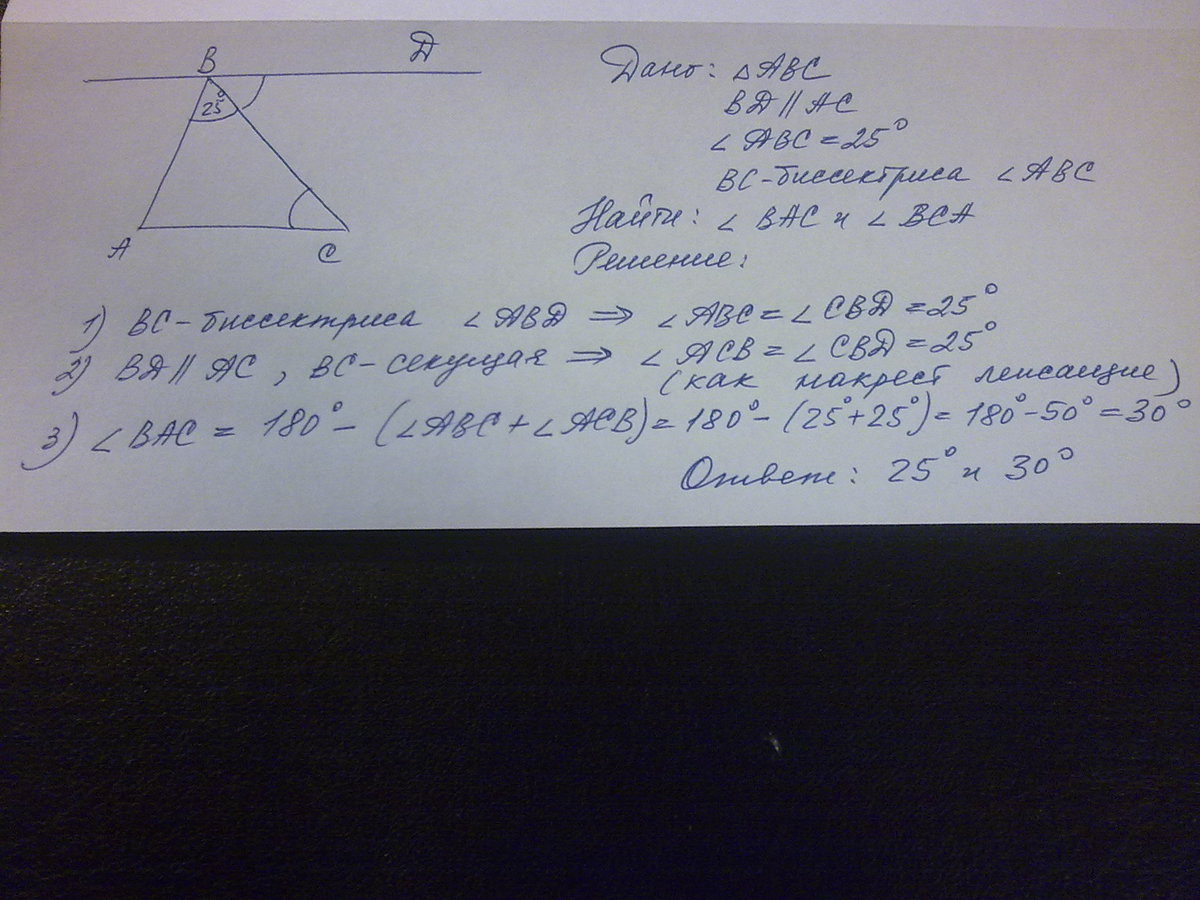 B D
25°
A C
Дано: △ABC
BD || AC
∠ABC = 25°
BC - биссектриса ∠ABC
Найти: ∠BAC и ∠BCA
Решение:
1) BC - биссектриса ∠ABD ⇒ ∠ABC = ∠CBD = 25°
2) BD || AC, BC - секущая ⇒ ∠ACB = ∠CBD = 25°
(как накрест лежащие)
3) ∠BAC = 180° - (∠ABC + ∠ACB) = 180° - (25° + 25°) = 180° - 50° = 30°
Ответ: 25° и 30°